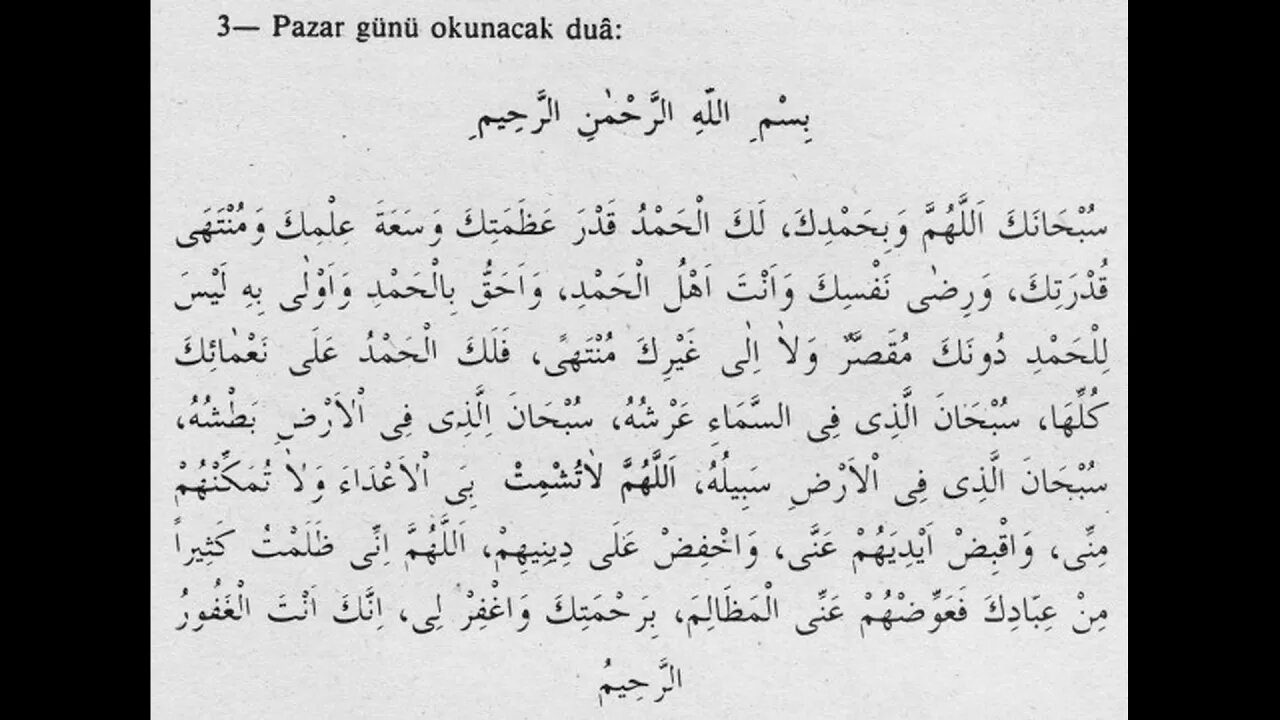 3— Pazar günü okunacak duâ:
بِسْمِ اللّٰهِ الرَّحْمٰنِ الرَّحِيمِ
سُبْحَانَكَ اَللَّهُمَّ وَبِحَمْدِكَ، لَكَ الْحَمْدُ قَدْرَ عَظَمَتِكَ وَسَعَةَ عِلْمِكَ وَمُنْتَهَى
قُدْرَتِكَ، وَرِضٰى نَفْسِكَ وَاَنْتَ اَهْلُ الْحَمْدِ، وَاَحَقُّ بِالْحَمْدِ وَاَوْلٰى بِهِ لَيْسَ
لِلْحَمْدِ دُونَكَ مُقَصَّرٌ وَلاٰ اِلٰى غَيْرِكَ مُنْتَهىً، فَلَكَ الْحَمْدُ عَلَى نَعْمٰائِكَ
كُلِّهَا، سُبْحَانَ الَّذِى فِى السَّمَاءِ عَرْشُهُ، سُبْحَانَ الَّذِى فِى اْلاَرْضِ بَطْشُهُ،
سُبْحَانَ الَّذِى فِى اْلاَرْضِ سَبِيلُهُ، اَللَّهُمَّ لاٰتُشْمِتْ بِىَ اْلاَعْدَاءَ وَلاٰ تُمَكِّنْهُمْ
مِنِّى، وَاقْبِضْ اَيْدِيَهُمْ عَنَّى، وَاخْفِضْ عَلَى دِينِيهِمْ، اَللَّهُمَّ اِنِّى ظَلَمْتُ كَثِيراً
مِنْ عِبَادِكَ فَعَوِّضْهُمْ عَنِّى الْمَظَالِمَ، بِرَحْمَتِكَ وَاغْفِرْ لِى، اِنَّكَ اَنْتَ الْغَفُورُ
الرَّحِيمُ